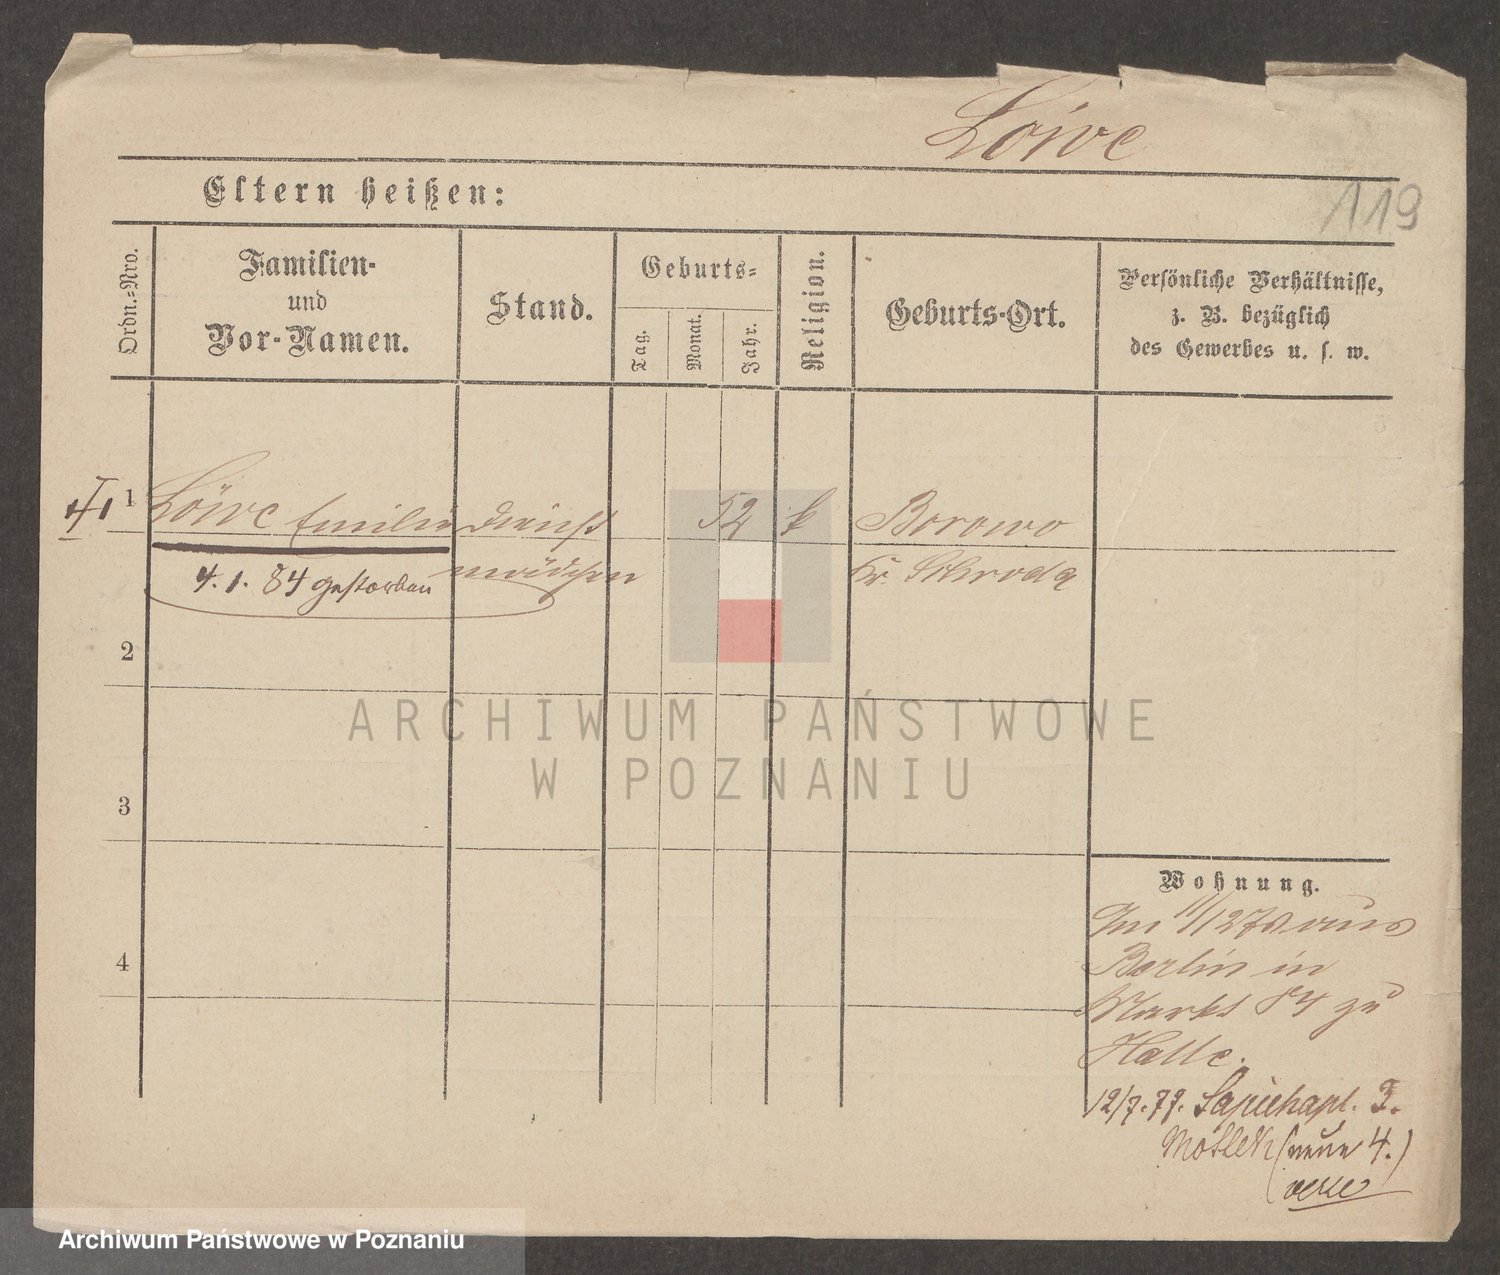 Löwe
119
Eltern heißen:
Ordn.=Nro.
Familien-
und
Vor-Namen.
Stand.
Geburts=
Tag.
Monat.
Jahr.
Religion.
Geburts-Ort.
Persönliche Verhältnisse,
z. B. bezüglich
des Gewerbes u. s. w.
1
Löwe Emilie Dienst 52 k Borowo
mädchen Kr. Schroda
4. 1. 84 gestorben
2
3
4
ARCHIWUM PAŃSTWOWE
W POZNANIU
Wohnung.
Am aus
Berlin in
Markt 84 zu
Halle.
12/7. 79. Sapiehapl. 3.
(neue 4.)
Archiwum Państwowe w Poznaniu